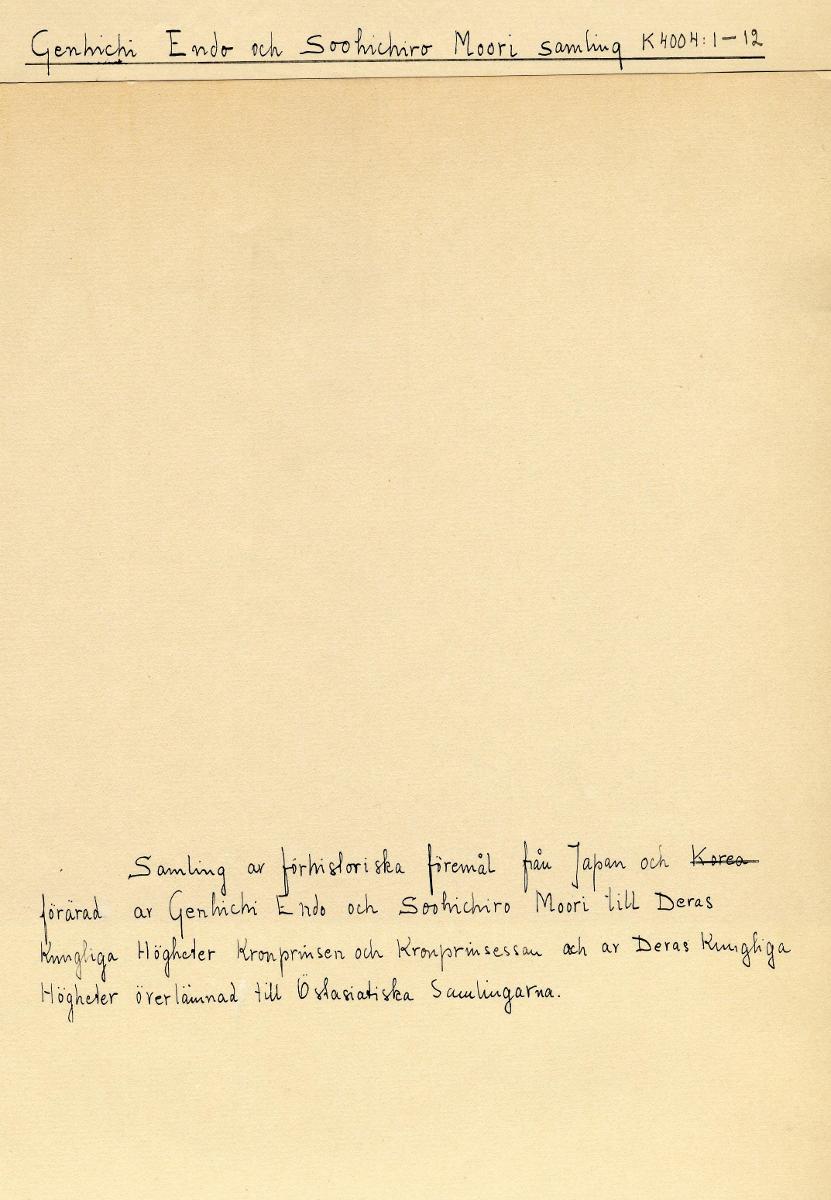 Genhichi Endo och Soohichiro Moori samling K4004:1-12
Samling av förhistoriska föremål från Japan och Korea
förärad av Genhichi Endo och Soohichiro Moori till Deras
Kungliga Högheter Kronprinsen och Kronprinsessan och av Deras Kungliga
Högheter överlämnad till Östasiatiska Samlingarna.